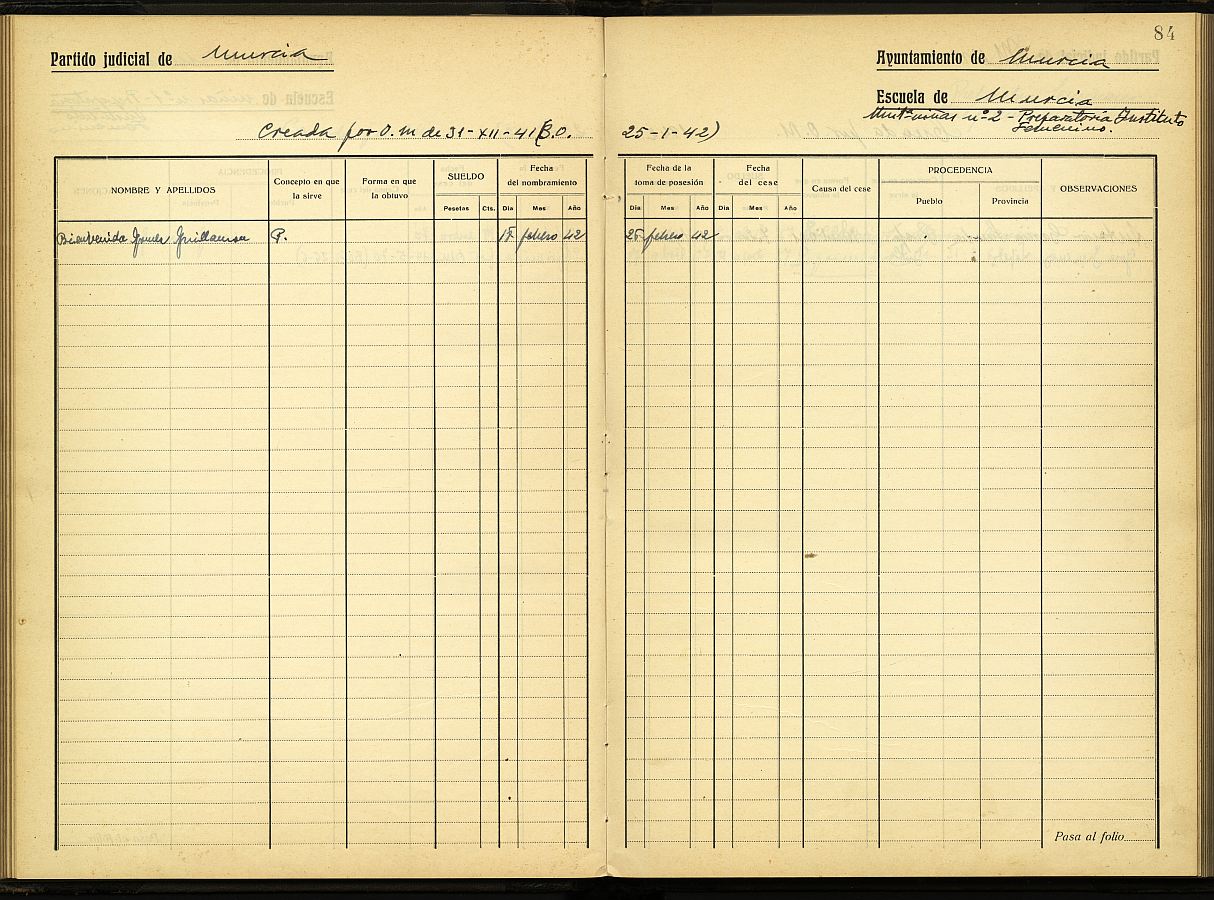 84
Partido judicial de Murcia
Ayuntamiento de Murcia
Escuela de Murcia
Unitª niñas nº 2 - Preparatoria Instituto
Femenino.
Creada por O. M de 31-XII-41 (B.O. 25-1-42)
NOMBRE Y APELLIDOS
Concepto en que
la sirve
Forma en que
la obtuvo
SUELDO
Pesetas Cts.
Fecha
del nombramiento
Dia Mes Año
Fecha de la
toma de posesión
Dia Mes Año
Fecha
del cese
Dia Mes Año
Causa del cese
PROCEDENCIA
Pueblo Provincia
OBSERVACIONES
Bienvenida Guillamon P. febrero 42 25 febrero 42
Pasa al folio